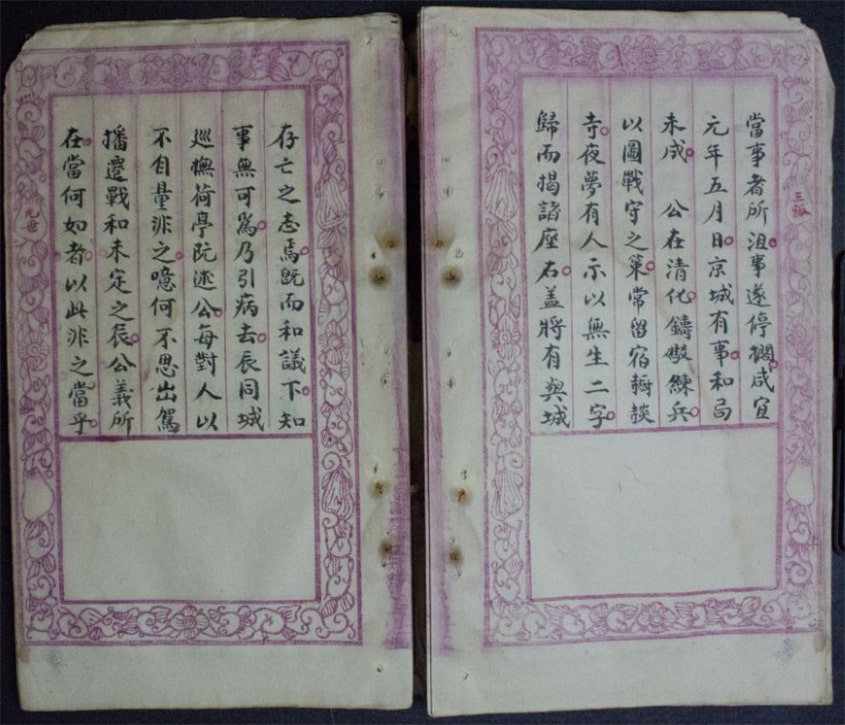 當事者所沮事遂停擱咸宜
元年五月日京城有事和局
未成 公在清化鑄礮練兵
以圖戰守之策常留宿
寺夜夢有人示以無生二字
歸而揭諸座右盖將有與城
存亡之志焉既而和議下知
事無可爲乃引病去辰同城
巡撫荷亭阮述公每對人以
不自量非之噫何不思出駕
播遷戰和未定之辰公義所
在當何如者以此非之當乎
九世